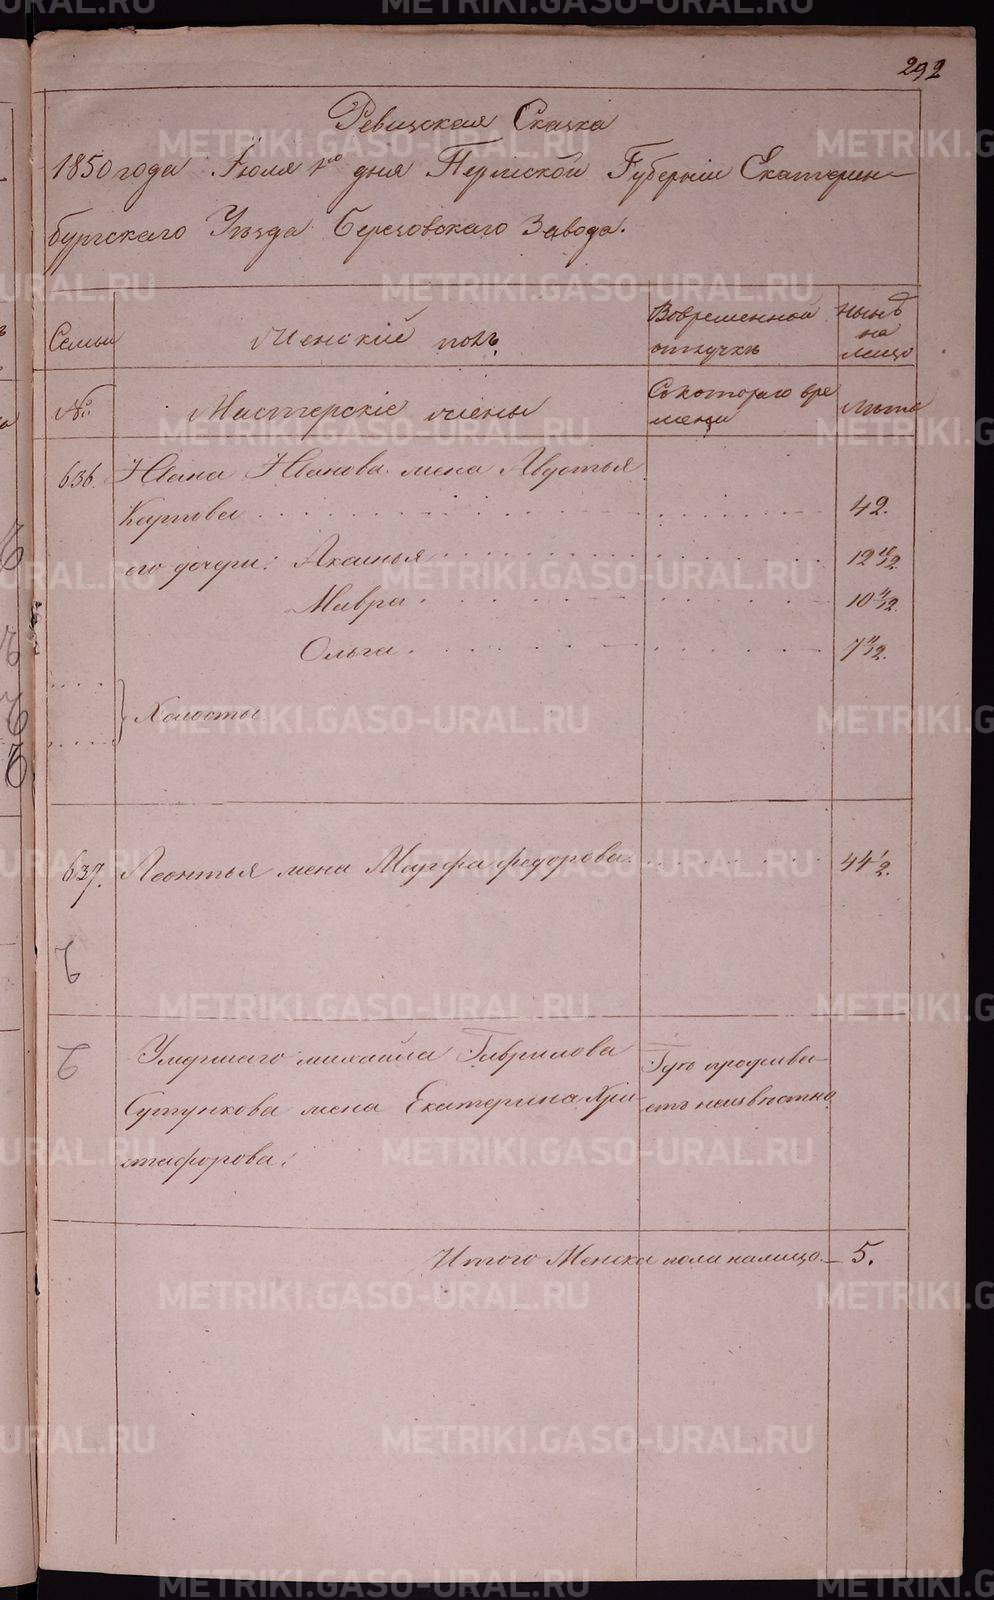 292
Ревизская Сказка
1850 года Июля 1го дня Пермской Губерніи Екатерин-
бургскаго Уѣзда Березовскаго Завода.
Семьи
Женскій полъ
Вовременной
отлучкѣ
Нынѣ
на
лицо
№
Мастерскіе жены
Съ котораго вре
мени
Лѣта
636. Ивана Иванова жена Авдотья
Карпова 42.
его дочери: Акилья 12 10/12.
Мавра 10 4/12.
Ольга 7 11/12.
Холосты
637. Леонтья жена Марфа Федорова 44 1/2.
Умершаго михаила Гаврилова
Сутункова жена Екатерина Хри-
стафорова:
Где прожива-
етъ неизвѣстно
Итого Женска пола налицо – 5.
METRIKI.GASO-URAL.RU